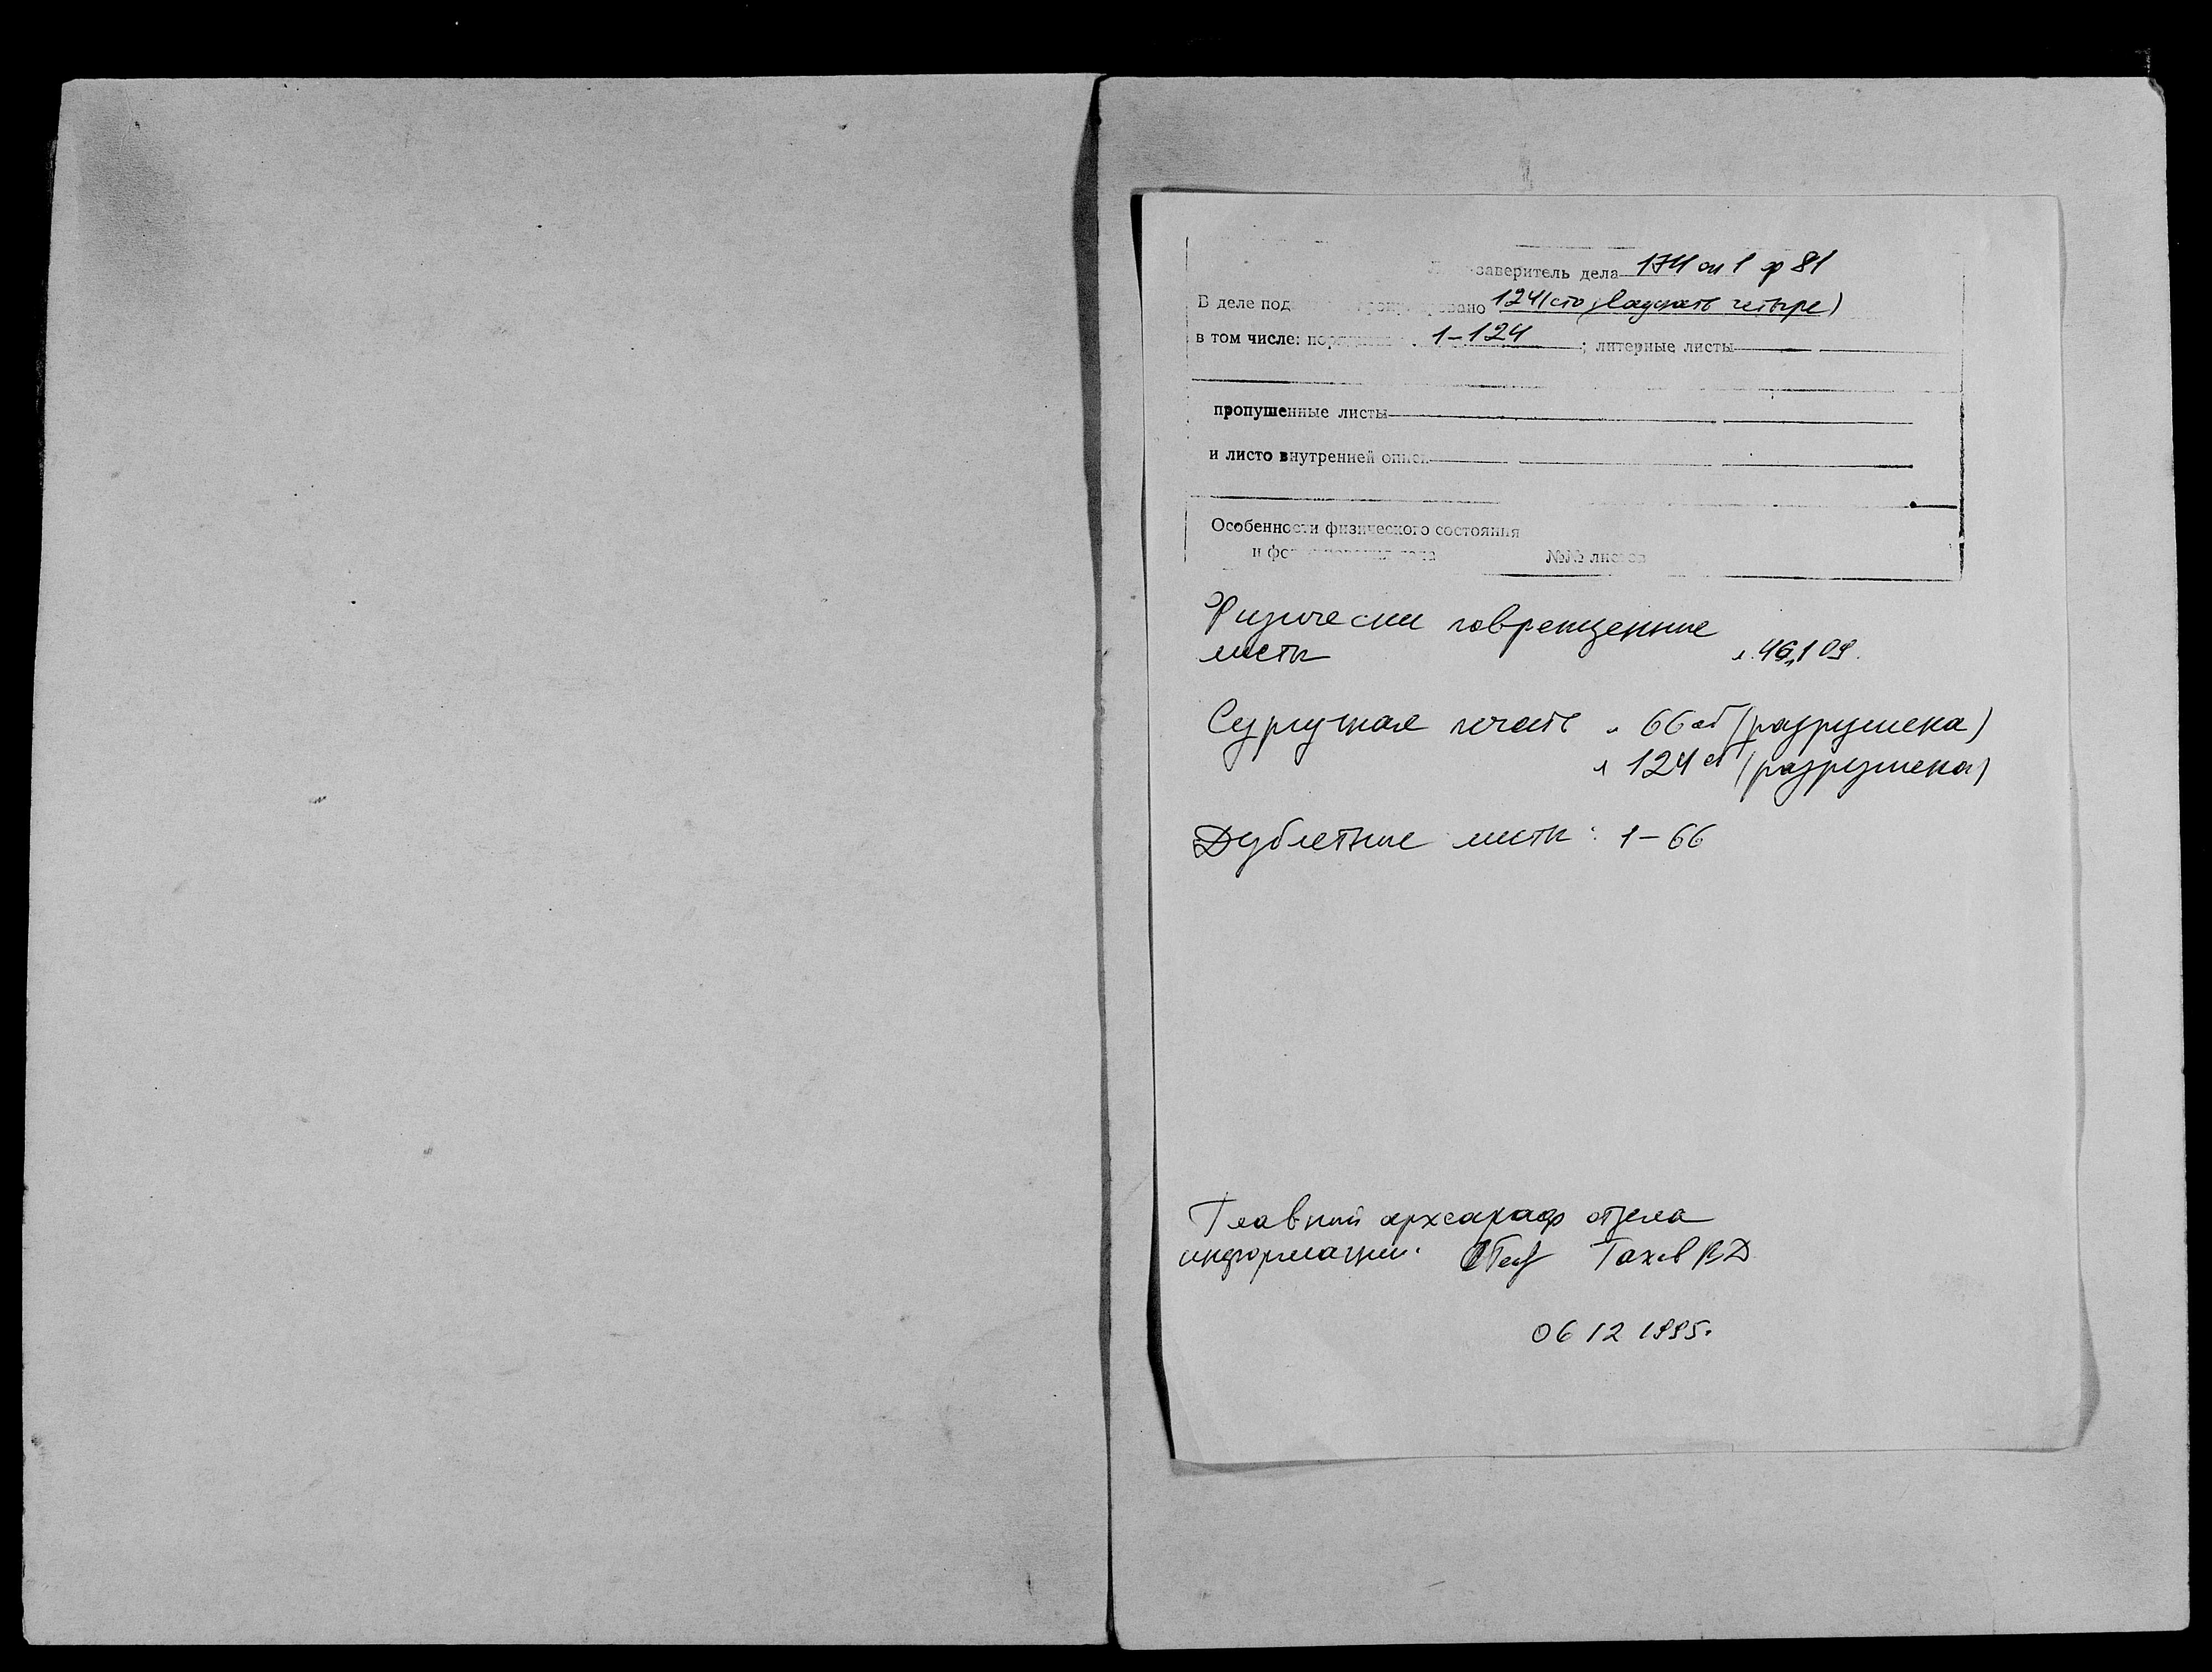 заверитель дела 174 оп 1 ф 81
В деле под 124 (сто двадцать четыре)
в том числе: 1-124 ; литерные листы
пропушенные листы
и листо внутренней описи
Особенности физического состояния
и формирования дела №№ листов
Физически поврежденные
листы л. 46, 109.
Сургучная печать л 66 об (разрушена)
л 124 об (разрушена)
Дублетные листы: 1-66
Главный археограф отдела
информации.
06 12 1995.